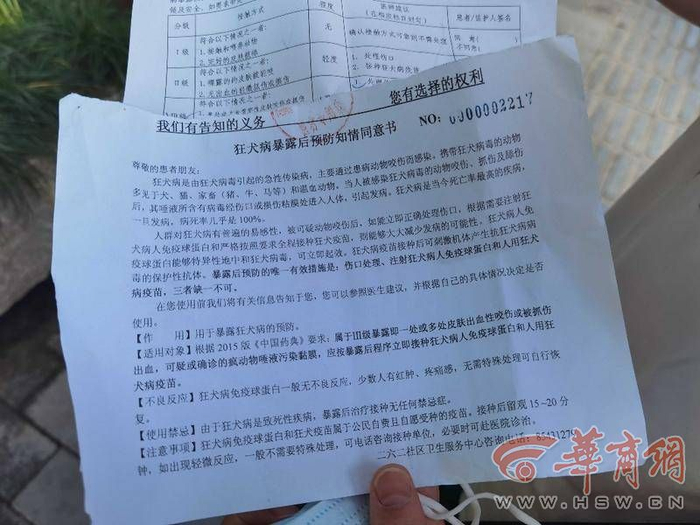 分级
接触方式
程度
无
确认接触方式可靠则不需处理
患者/监护人签名
I级
符合以下情况之一者:
1. 接触和喂养动物
II级
符合以下情况之一者:
轻度
1. 处理伤口
符合以下情况之一者:
我们有告知的义务 您有选择的权利
狂犬病暴露后预防知情同意书 NO: 0000002217
尊敬的患者朋友:
狂犬病是由狂犬病毒引起的急性传染病,主要通过患病动物咬伤而感染。携带狂犬病毒的动物
多见于犬、猫、家畜(猪、牛、马等)和温血动物。当人被感染狂犬病毒的动物咬伤、抓伤及舔伤
后,其唾液所含有病毒经伤口或损伤粘膜处进入人体,引起发病。狂犬病是当今死亡率最高的疾病,
一旦发病,病死率几乎是100%。
人群对狂犬病有普遍的易感性,被可疑动物咬伤后,如能立即正确处理伤口,根据需要注射狂
犬病人免疫球蛋白和严格按照要求全程接种狂犬疫苗,则能够大大减少发病的可能性。狂犬病人
免疫球蛋白能够特异性地中和狂犬病毒,可立即起效。狂犬病疫苗接种后可刺激机体产生抗狂犬病病
毒的保护性抗体。暴露后预防的唯一有效措施是:伤口处理、注射狂犬病人免疫球蛋白和人用狂犬
病疫苗,三者缺一不可。
在您使用前我们将有关信息告知于您,您可以参照医生建议,并根据自己的具体情况决定是否
使用。
【作 用】用于暴露狂犬病的预防。
【适用对象】根据2015版《中国药典》要求:属于III级暴露即一处或多处皮肤出血性咬伤或被抓伤
出血,可疑或确诊的疯动物唾液污染黏膜,应按暴露后程序立即接种狂犬病人免疫球蛋白和人用狂
犬病疫苗。
【不良反应】狂犬病免疫球蛋白一般无不良反应,少数人有红肿、疼痛感,无需特殊处理可自行恢
复。
【使用禁忌】由于狂犬病是致死性疾病,暴露后治疗接种无任何禁忌症。
【注意事项】狂犬病免疫球蛋白和狂犬疫苗属于公民自费且自愿受种的疫苗,接种后留观15-20分
钟,如出现轻微反应,一般不需要特殊处理,可电话咨询接种单位,必要时可赴医院诊治,
二六二社区卫生服务中心咨询电话:
華商網
WWW.HSW.CN